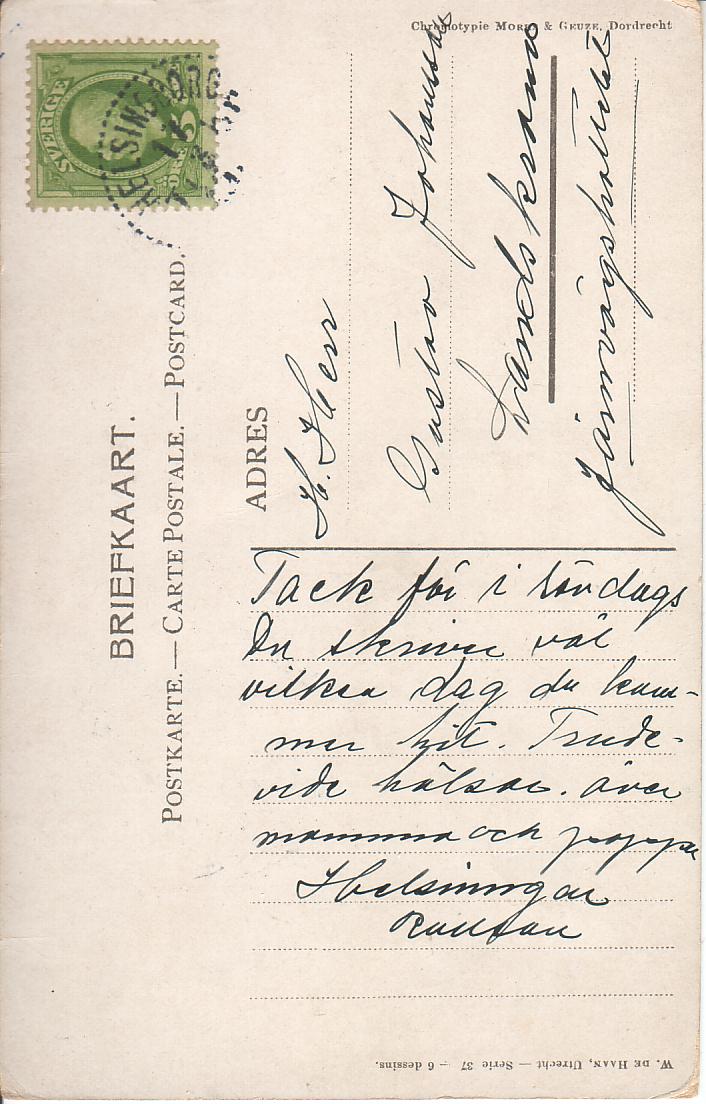 Chromotypie MORKS & GEUZE, Dordrecht
SVERIGE
5
ÖRE
HELSINGBORG
BRIEFKAART.
POSTKARTE. — CARTE POSTALE. — POSTCARD.
ADRES
H. Herr
Gustav Johansson
Landskrona
Järnvägshotellet
Tack för i söndags
Du skriver väl
vilken dag du kom-
mer hit.
vide hälsar. även
mamma och pappa
Helsningar
W. DE HAAN, Utrecht — Serie 37 — 6 dessins.